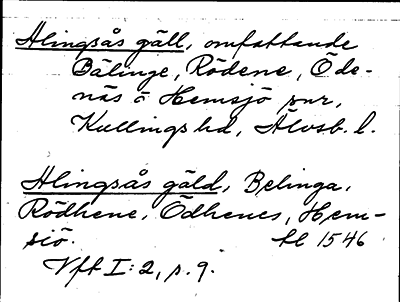 Alingsås gäll, omfattande
Bälinge, Rödene, Öde-
näs o Hemsjö snr,
Kullings hd, Älvsb. l.
Alingsås gäld, Belinga,
Rödhene, Ödhenes, Hem-
siö. tl 1546
Vft I: 2, s. 9.